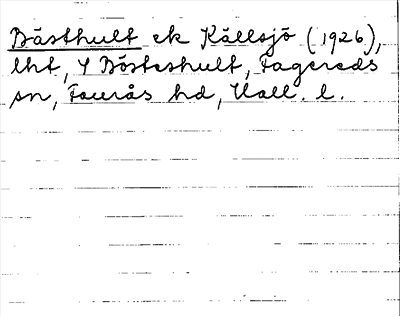 Bästhult ek Källsjö (1926),
lht, Y Bösteshult, Fagereds
sn, Faurås hd, Hall. l.